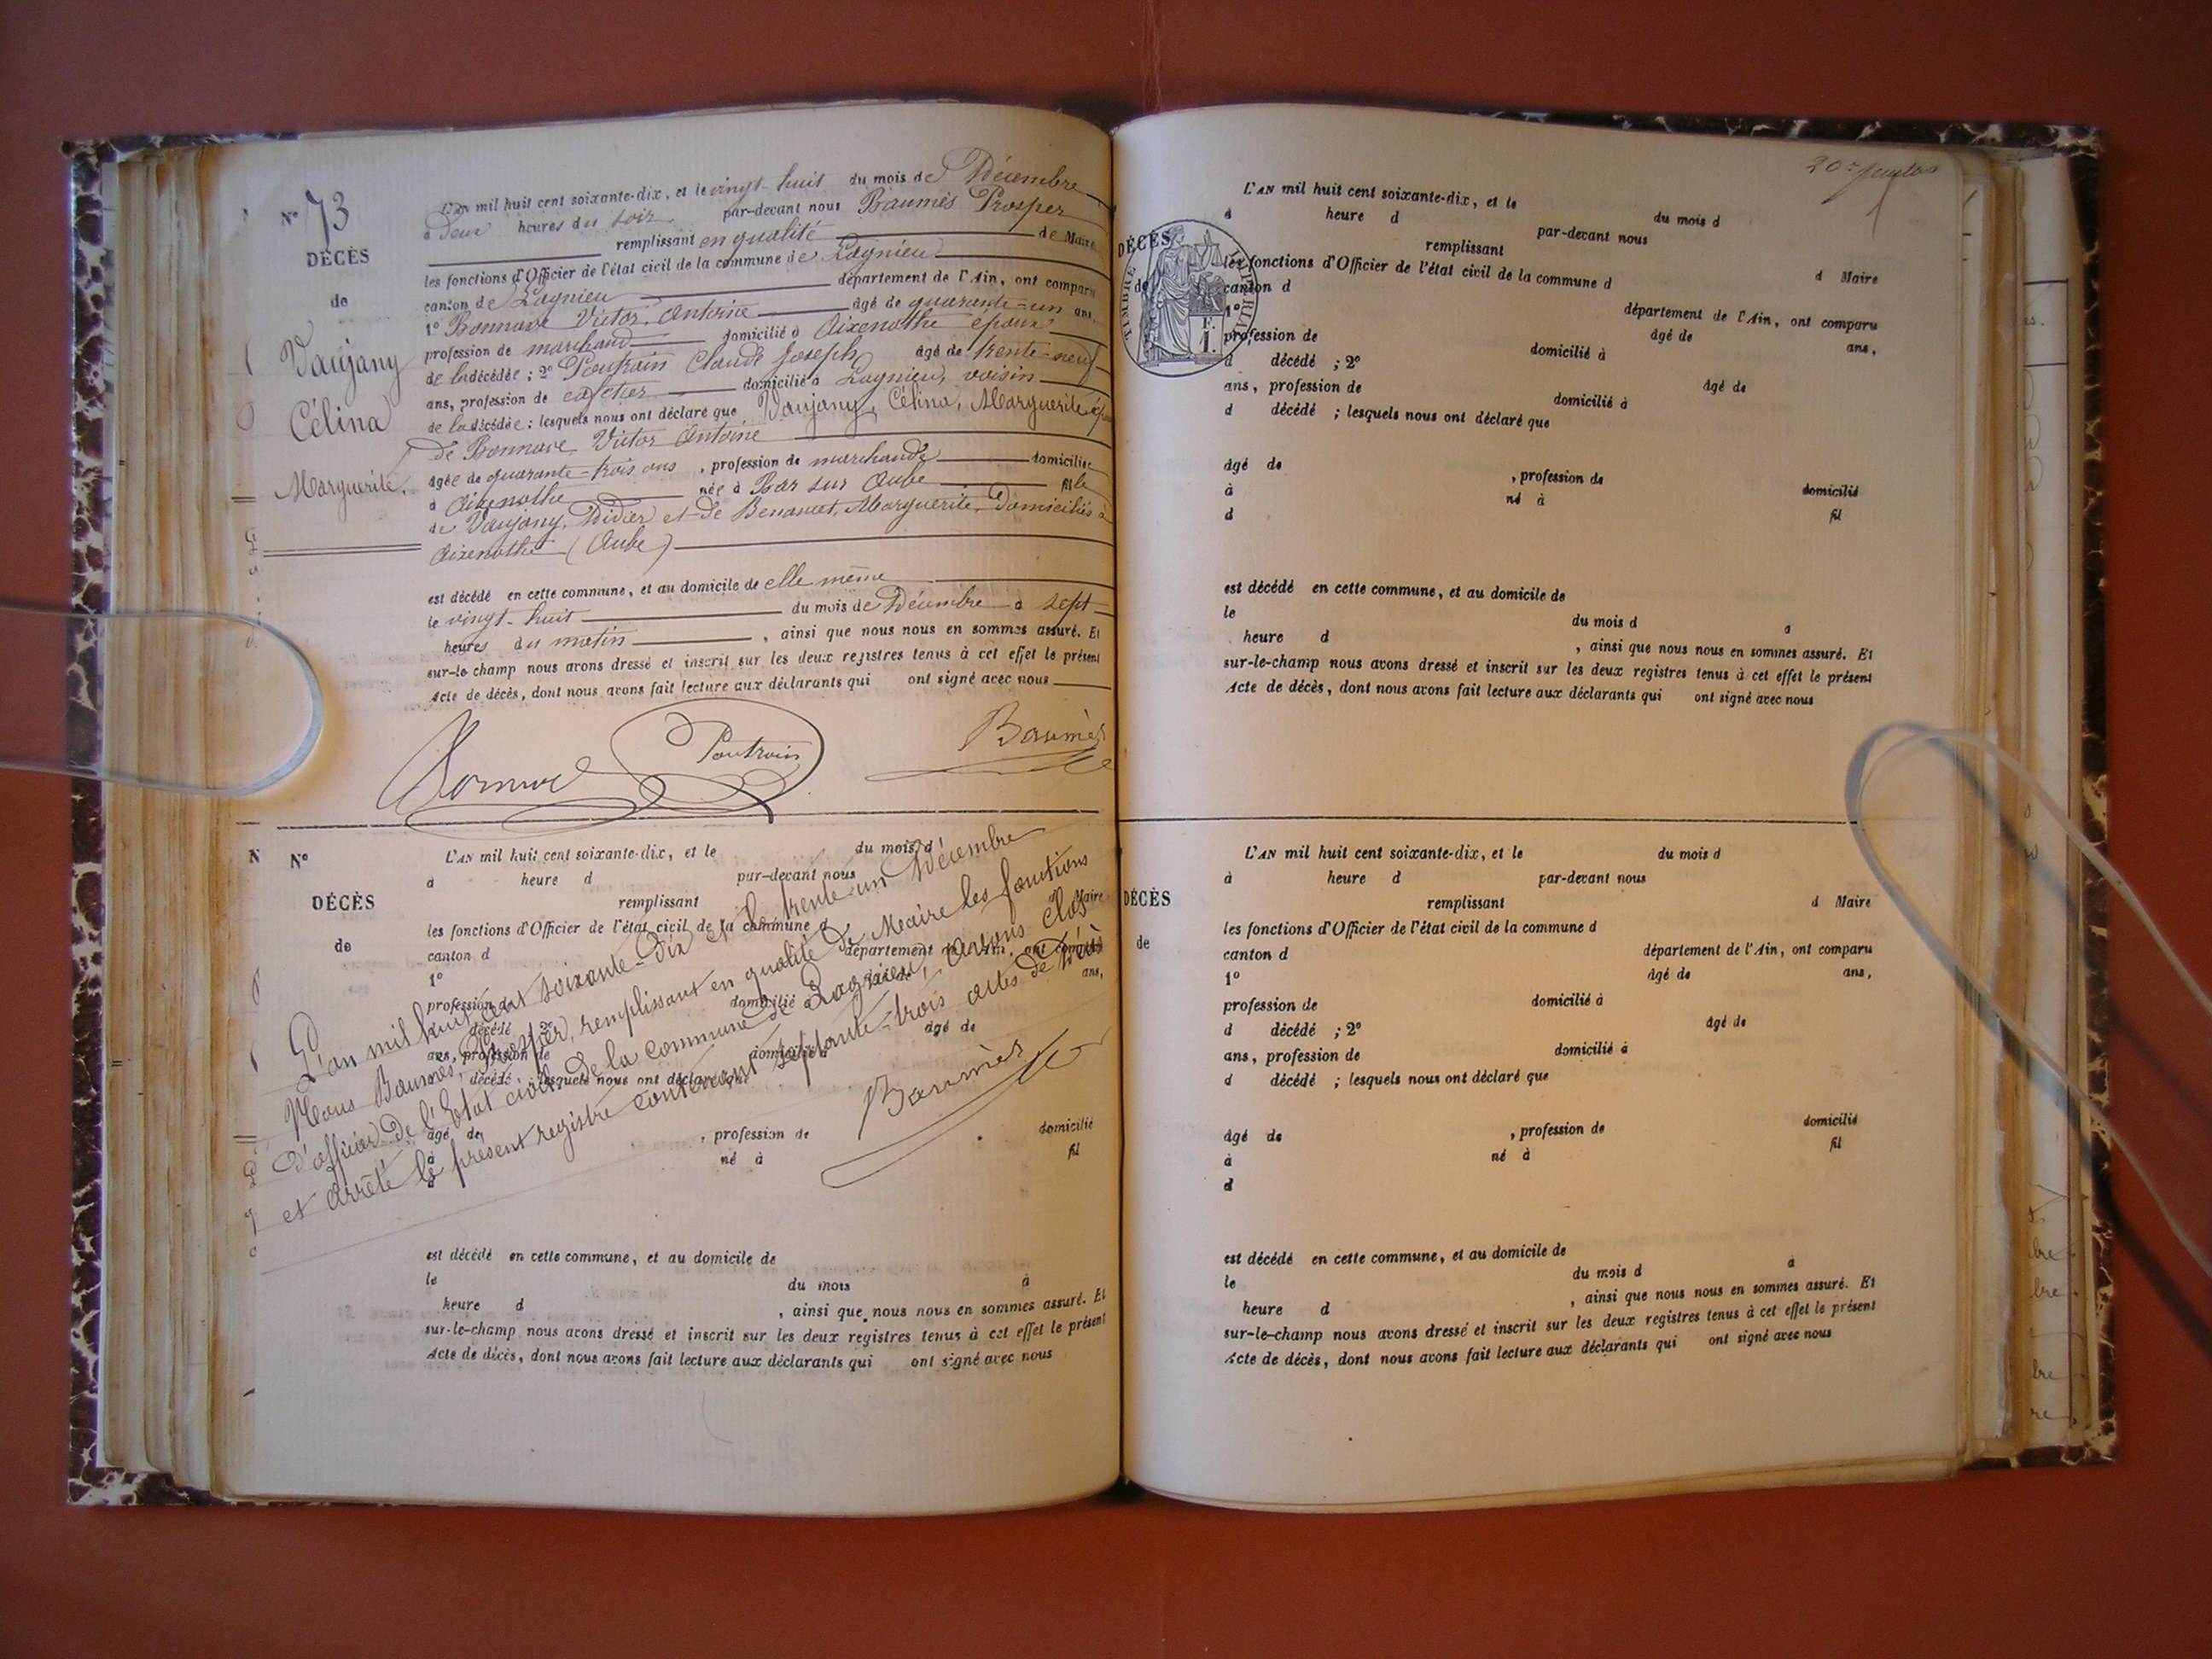 N° 73
DÉCÈS
de
Vaujany
Célina
Marguerite.
L'AN mil huit cent soixante-dix, et le vingt-huit du mois de Décembre
à Deux heures du soir par-devant nous Baumès Prosper
remplissant en qualité de Maire
les fonctions d'Officier de l'état civil de la commune de Lagnieu
canton de Lagnieu département de l'Ain, ont comparu
1° Bonnave Victor Antoine âgé de quarante-un ans,
profession de marchand domicilié à Aixenothe époux
de la décédée ; 2° Poutrain Claude Joseph âgé de trente-neuf
ans, profession de cafetier domicilié à Lagnieu, voisin
de la décédée ; lesquels nous ont déclaré que Vaujany, Célina, Marguerite
de Bonnave, Victor Antoine
âgée de quarante-trois ans , profession de marchande domiciliée
à Aixenothe née à Bar sur Aube fille
de Vaujany, Didier et de Marguerite, Domiciliés à
Aixenothe (Aube)
est décédé en cette commune, et au domicile de elle même
le vingt-huit du mois de Décembre à sept
heures du matin , ainsi que nous nous en sommes assuré. Et
sur-le champ nous avons dressé et inscrit sur les deux registres tenus à cet effet le présent
Acte de décès, dont nous avons fait lecture aux déclarants qui ont signé avec nous
Poutrain
Baumès
N°
DÉCÈS
de
L'AN mil huit cent soixante-dix, et le du mois d
à heure d par-devant nous
remplissant d Maire
les fonctions d'Officier de l'état civil de la commune d
canton d département de l'Ain, ont comparu
1° âgé de ans,
profession de domicilié à
d décédé ; 2° âgé de
ans, profession de domicilié à
d décédé ; lesquels nous ont déclaré que
âgé de , profession de domicilié
à né à fil
d
L'an mil huit cent soixante-Dix et le trente-un Décembre
Nous Baumès, Prosper, remplissant en qualité de Maire les fonctions
d'officier de l'Etat civil de la commune de Lagnieu, avons clos
et arrêté le présent registre contenant septante-trois actes de Décès
Baumès
est décédé en cette commune, et au domicile de
le du mois à
heure d , ainsi que nous nous en sommes assuré. Et
sur-le-champ nous avons dressé et inscrit sur les deux registres tenus à cet effet le présent
Acte de décès, dont nous avons fait lecture aux déclarants qui ont signé avec nous
TIMBRE IMPERIAL
1 F.
DÉCÈS
de
L'AN mil huit cent soixante-dix, et le du mois d
à heure d par-devant nous
remplissant d Maire
les fonctions d'Officier de l'état civil de la commune d
canton d département de l'Ain, ont comparu
1° âgé de ans,
profession de domicilié à
d décédé ; 2° âgé de
ans, profession de domicilié à
d décédé ; lesquels nous ont déclaré que
âgé de , profession de domicilié
à né à fil
d
est décédé en cette commune, et au domicile de
le du mois d à
heure d , ainsi que nous nous en sommes assuré. Et
sur-le-champ nous avons dressé et inscrit sur les deux registres tenus à cet effet le présent
Acte de décès, dont nous avons fait lecture aux déclarants qui ont signé avec nous
DÉCÈS
de
L'AN mil huit cent soixante-dix, et le du mois d
à heure d par-devant nous
remplissant d Maire
les fonctions d'Officier de l'état civil de la commune d
canton d département de l'Ain, ont comparu
1° âgé de ans,
profession de domicilié à
d décédé ; 2° âgé de
ans, profession de domicilié à
d décédé ; lesquels nous ont déclaré que
âgé de , profession de domicilié
à né à fil
d
est décédé en cette commune, et au domicile de
le du mois d à
heure d , ainsi que nous nous en sommes assuré. Et
sur-le-champ nous avons dressé et inscrit sur les deux registres tenus à cet effet le présent
Acte de décès, dont nous avons fait lecture aux déclarants qui ont signé avec nous